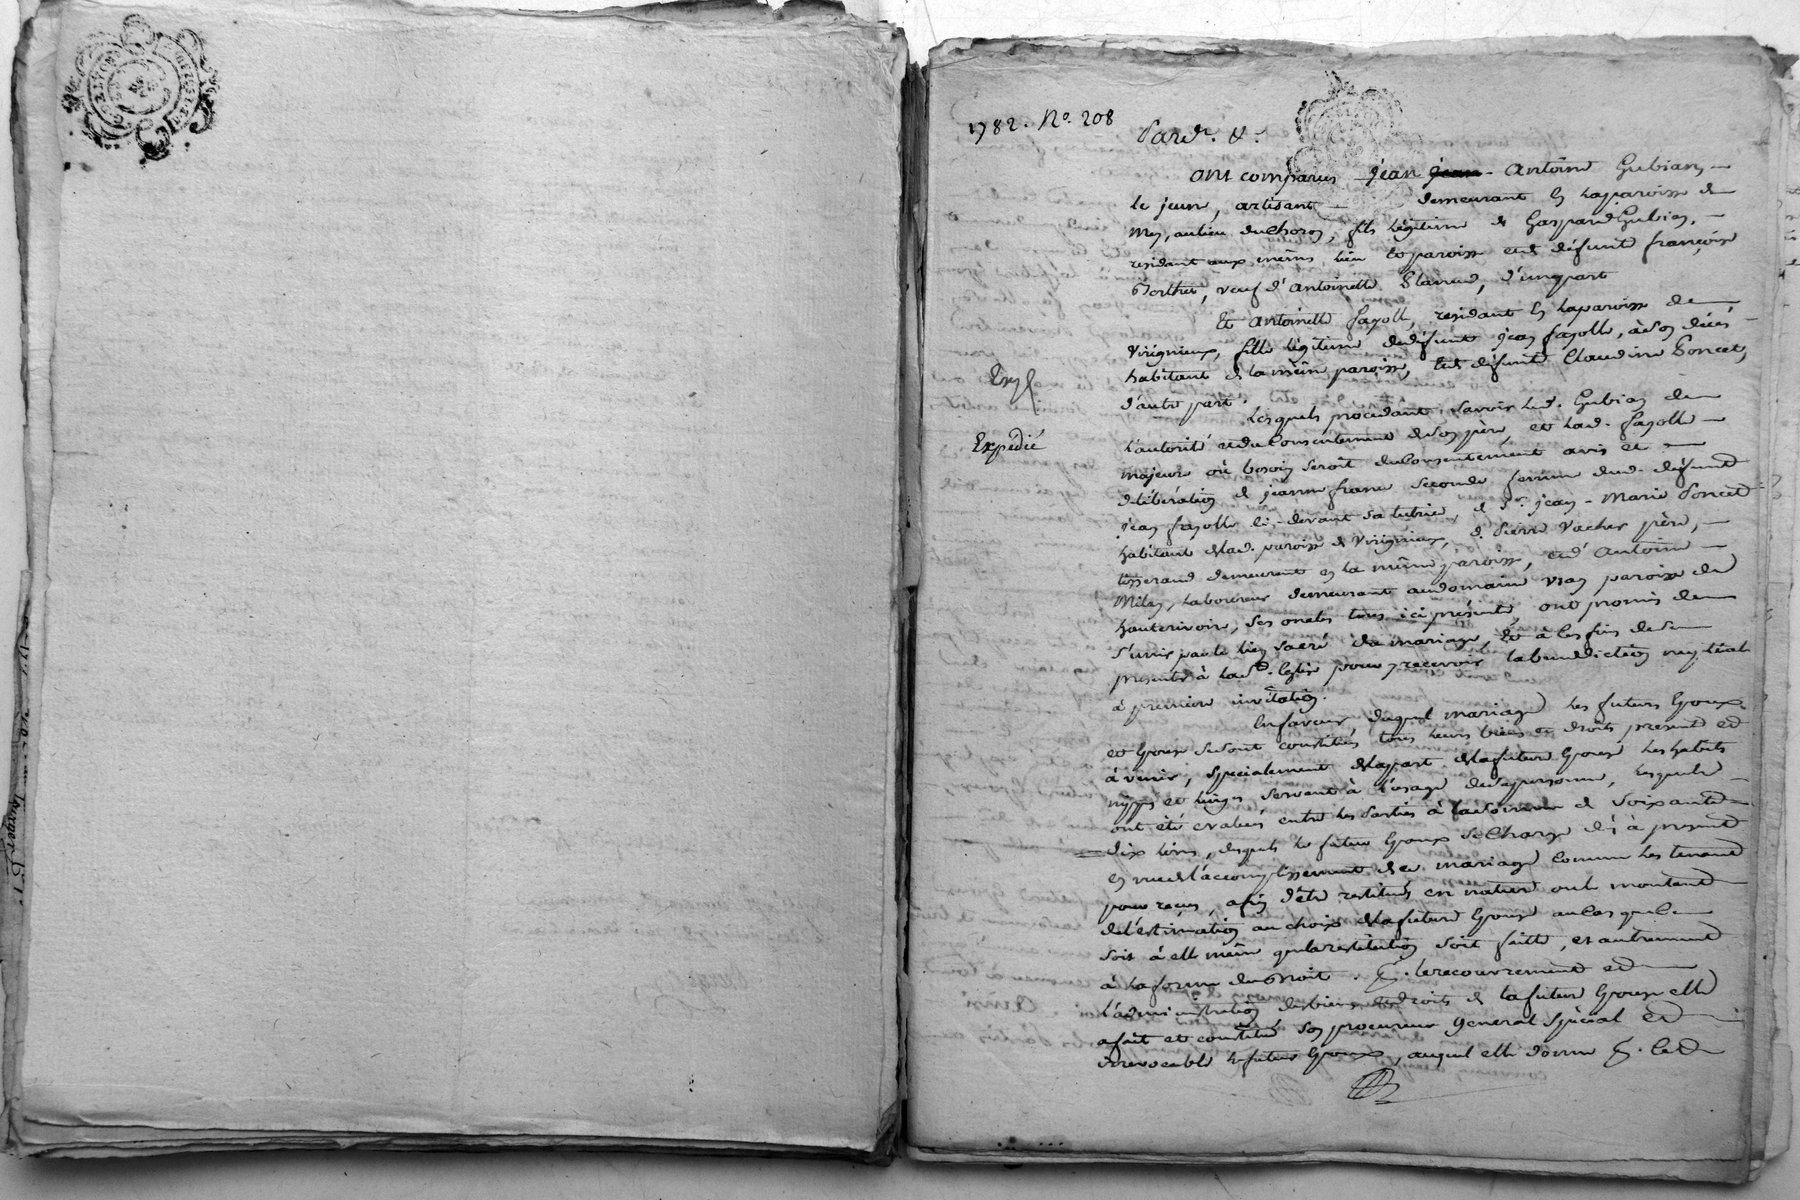 1782. No. 208
Pard.t &.
ont comparus jean jean Antoine Gubian
le jeune, artisant demeurant en la paroisse de
Mey, au lieu du Choron, fils légitime de Gaspard Gubian,
residant aux mêmes lieu et paroisse et de défunte françoise
veuf d'antoinette d'une part
Et antoinette fayolle, residant en la paroisse de
Virigneux, fille légitime de défunt jean fayolle, à son décés
habitant de la même paroisse, et de défunte Claudine Poncet,
d'autre part.
Expédié
Lesquels procedant, savoir led. Gubian de
l'autorité et du Consentement de son père, et lad. fayolle
majeure où besoin seroit du consentement avis et
délibération de jeanne france seconde femme dud. défunt
jean fayolle ci-devant sa tutrice, de Sr. jean-Marie Poncet
habitant de lad. paroisse de Virigneux, d. Pierre Vacher père,
tisserand demeurant en la même paroisse, et d'Antoine
Milan, laboureur demeurant au domaine paroisse de
hauterivoire, ses oncles tous ici présents, ont promis de
s'unir par le lien sacré du mariage, et à les fins de se
presenter à la Ste. Eglise pour y recevoir la benediction nuptiale
à premiere invitation.
En faveur duquel mariage les futurs Epoux
et Epouse se sont constitués tous leurs biens et droits present et
à venir, specialement de la part de la future Epouse les habits
nippes et linges servant à l'usage de sa personne, lesquels
ont été evalués entre les Parties à la somme de soixante
dix livres, desquels le futur Epoux se charge dès à present
en vue de l'accomplissement de ce mariage comme les tenant
pour recus, afin d'être restitués en nature ou le montant
de l'estimation au choix de la future Epouse au cas que
soit à elle même que la restitution soit faite, et autrement
à la forme du Droit. P. le recouvrement et
l'administration des biens et droits de la future Epouse elle
a fait et constitué son procureur general special et
irrevocable le futur Epoux, auquel elle donne P. ce